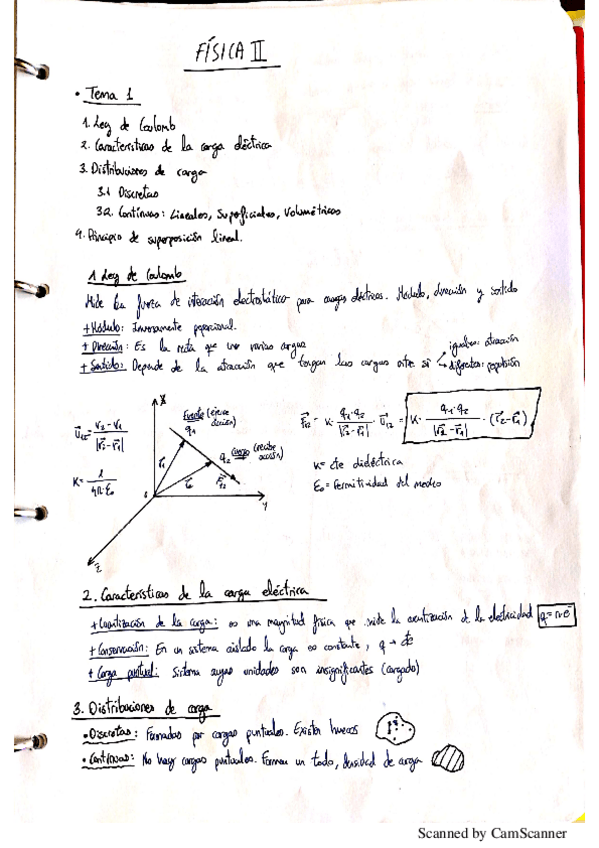 FÍSICA II
• Tema 1
1. Ley de Coulomb
2. Características de la carga eléctrica
3. Distribuciones de carga
3.1 Discretas
3.2. Contínuas: Lineales, Superficiales, Volumétricas
4. Principio de superposición lineal.
1 Ley de Coulomb
Mide la fuerza de interacción electrostática para cargas eléctricas. Módulo, dirección y sentido
+ Módulo: Inversamente proporcional.
+ Dirección: Es la recta que une varias cargas
+ Sentido: Depende de la atracción que tengan las cargas entre si
iguales: atracción
diferentes: repulsión
Fuente (ejerce acción)
q1
Cuerpo (recibe acción)
q2
F12
r1
Y
K = cte dieléctrica
ε0 = Permitividad del medio
2. Características de la carga eléctrica
+ Cuantización de la carga: es una magnitud física que mide la cuantización de la electricidad q = n·e
+ Conservación: En un sistema aislado la carga es constante, q → cte
+ Carga puntual: Sistema cuyas unidades son insignificantes (cargado)
3. Distribuciones de carga
• Discretas: Formadas por cargas puntuales. Existen huecos
• Contínuas: No hay cargas puntuales. Forman un todo, densidad de carga
Scanned by CamScanner